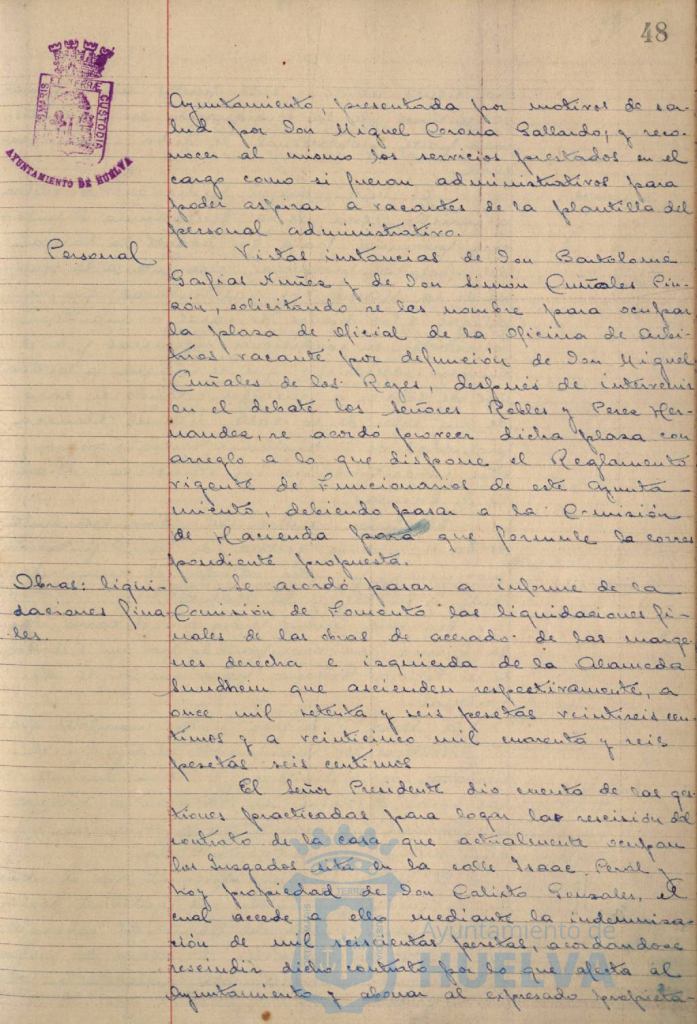 48
PORTUS MARIS ET TERRAE CUSTODIA
AYUNTAMIENTO DE HUELVA
Ayuntamiento, presentada por motivos de sa-
lud por Don Miguel Corona Gallardo, y reco-
nocer al mismo los servicios prestados en el
cargo como si fueran administrativos para
poder aspirar a vacantes de la plantilla del
personal administrativo.
Personal
Vistas instancias de Don Bartolomé
Garfias Nuñez y de Don Simón Cuñales Pin-
zón, solicitando se les nombre para ocupar
la plaza de Oficial de la Oficina de Arbi-
trios vacante por defunción de Don Miguel
Cuñales de los Reyes, después de intervenir
en el debate los Señores Robles y Perez Her-
nandez, se acordó proveer dicha plaza con
arreglo a lo que dispone el Reglamento
vigente de Funcionarios de este Ayunta-
miento, debiendo pasar a la Comisión
de Hacienda para que formule la corres
pondiente propuesta.
Obras: liqui-
daciones fina-
les.
Se acordó pasar a informe de la
Comisión de Fomento las liquidaciones fi-
nales de las obras de acerado de las marge-
nes derecha e izquierda de la Alameda
Sundheim que ascienden respectivamente, a
once mil setenta y seis pesetas veintiseis cen-
timos y a veinticinco mil cuarenta y seis
pesetas seis centimos
El Señor Presidente dio cuenta de las ges-
tiones practicadas para lograr la rescisión del
contrato de la casa que actualmente ocupan
los Juzgados sita en la calle Isaac Peral y
hoy propiedad de Don Calixto Gonzalez, el
cual accede a ello mediante la indemniza-
ción de mil seiscientas pesetas, acordandose
rescindir dicho contrato por lo que afecta al
Ayuntamiento y abonar al expresado propieta-
Ayuntamiento de
HUELVA